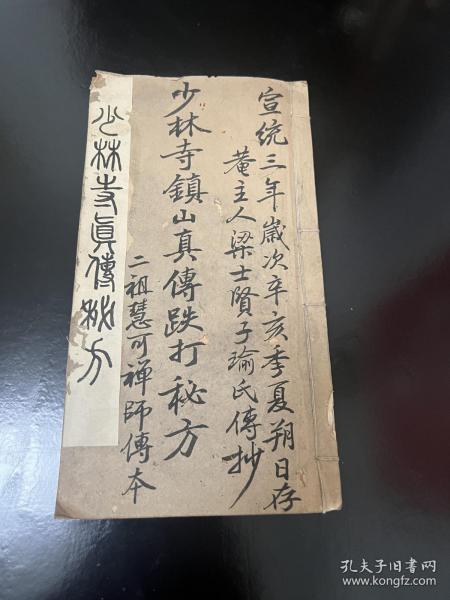 宣统三年歲次辛亥季夏朔日存
菴主人梁士賢子瑜氏傳抄
少林寺鎮山真傳跌打秘方
二祖慧可禪師傳本
少林寺眞傳秘方
孔夫子旧书网
www.kongfz.com